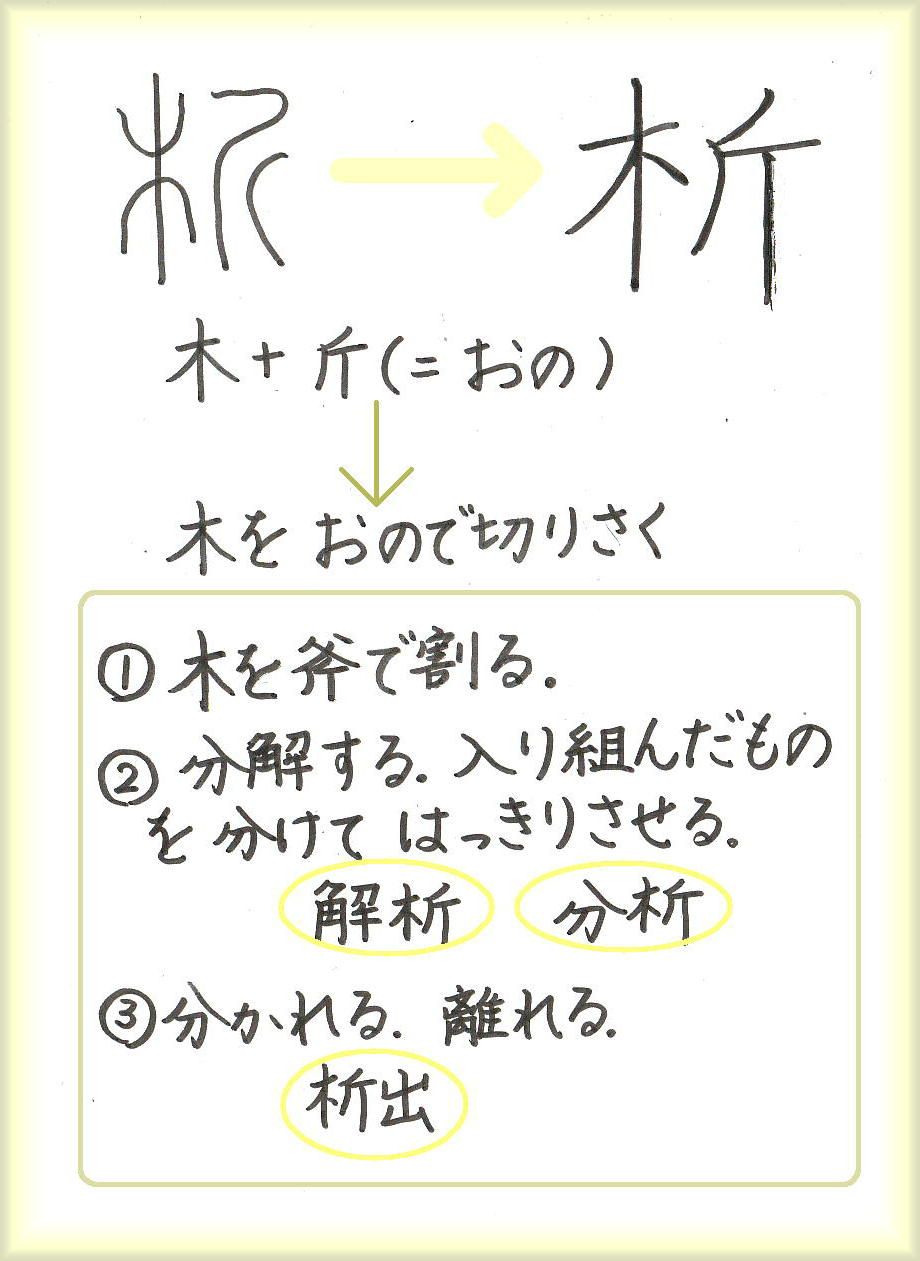 析 → 析
木+斤(=おの)
↓
木をおので切りさく
① 木を斧で割る.
② 分解する. 入り組んだもの
を分けてはっきりさせる。
解析 分析
③ 分かれる. 離れる.
析出